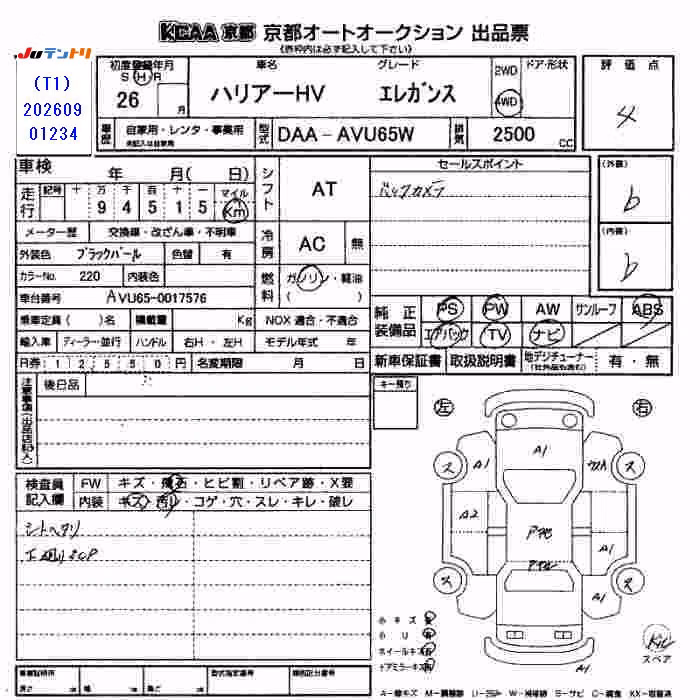 KCAA京都 京都オートオークション 出品票
(赤枠内は必ず記入して下さい)
JUテントリ
(T1)
202609
01234
初度登録年月
S H R
26 月
車名
ハリアーHV
グレード
エレガンス
2WD
4WD
ドア・形状
評価点
4
車歴
自家用・レンタ・事業用
型式
DAA-AVU65W
排気
2500 CC
車検 年 月( 日)
シフト
AT
セールスポイント
バックカメラ
(外装)
b
(内装)
b
走行
記号 十 万 千 百 十 一 マイル
9 4 5 1 5 Km
メーター歴 交換車・改ざん車・不明車
冷房
AC 無
外装色 ブラックパール 色替 有
カラーNo. 220 内装色
燃料
ガソリン・軽油
( )
車台番号 AVU65-0017576
乗車定員 ( )名 積載量 Kg NOX 適合・不適合
輸入車 ディーラー・並行 ハンドル 右H・左H モデル年式 年
R券 12550円 名変期限 月 日
純正装備品
PS PW AW サンルーフ ABS
エアバック TV ナビ
新車保証書 取扱説明書 地デジチューナー 有・無
注意事項(出品店記入)
後日品
キー残り
左 右
検査員記入欄
FW キズ・飛石・ヒビ割・リペア跡・X要
内装 キズ・汚れ・コゲ・穴・スレ・キレ・破レ
シートヘタリ
A1
ス A1 ス
A2
A1
ス ス
A1
小キズ 有
小U 有
ホイールキズ 有
ドアミラーキズ 有
スペア
車輌証明所 長さ cm 幅 cm 高さ cm
型式指定番号
類別区分番号